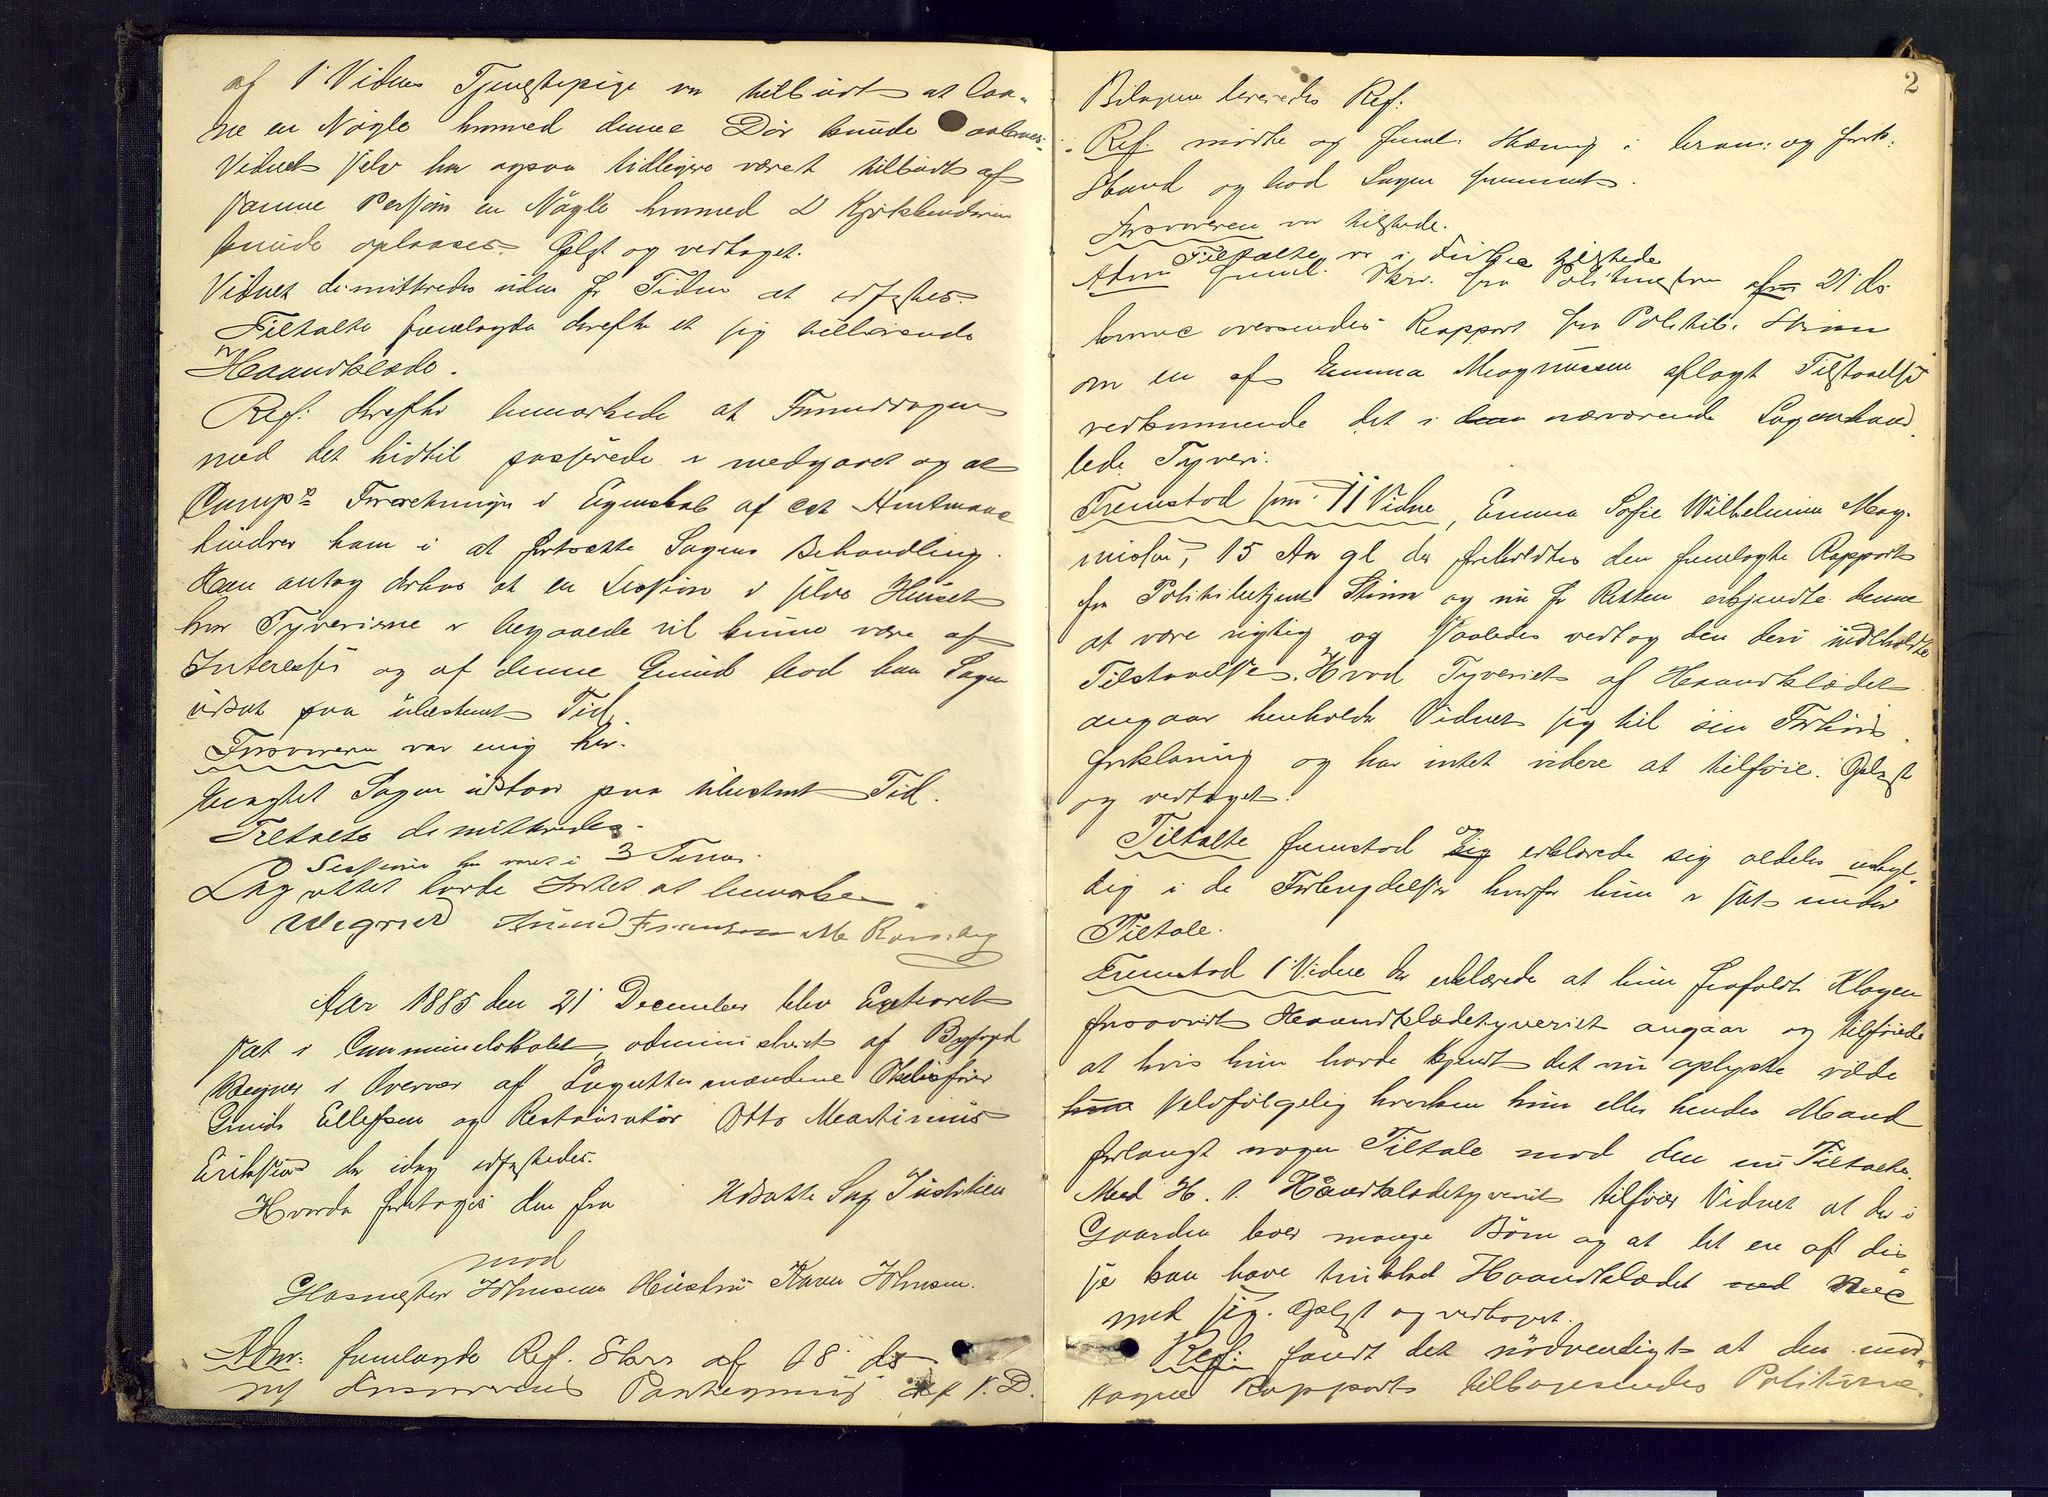 af 1' Vidnes Tjenestepige var tilbudt at laa-
ne en Nøgle hvormed denne Dør kunde aabnes.
Vidnet selv har ogsaa tidligere været tilbudt af
samme Person en Nøgle hvormed Kjøkkendøren
kunde oplaases. Oplæst og vedtaget.
Vidnet demitteredes uden for Tiden at edfæstes.
Tiltalte fremlagde derefter et sig tilhørende
Haandklæde.
Ref: derefter bemærkede at Formiddagen
med det hidtil passerede er medgaaet og at
Forretninger i Egenskab af cst Amtmand
hindrer ham i at fortsætte Sagens Behandling.
Han antog derhos at en Session i selve Huset
hvor Tyverierne er begaaede vil kunne være af
Interesse og af denne Grund bad han Sagen
udsat paa ubestemt Tid.
Forsvareren var enig her.
Eragtet Sagen udstaar paa ubestemt Tid.
Tiltalte demitteredes.
Sessionen har varet i 3 Timer.
Lagrettet havde Intet at bemærke.
Wegner
Aar 1885 den 21' December blev Extraret
sat i Communelokalet administreret af Byfogd
Wegner i Overvær af Lagrettesmændene
Ellefsen og Restauratør Otto Martinius
Eriksen der idag edfæstedes.
Hvorda foretoges den fra Udsatte Sag Justitien
mod
Gasmester Johnsens Hustru Karen Johnsen.
Adm: fremlagde Ref. Skr. af 18' ds
Forsvarerens Paategning af s. D.
2
Bilagen leveredes Ref:
Ref. mødte og freml. Hæng i
og bad Sagen fremmet.
Forsvareren var tilstede.
Tiltalte var i Frihed tilstede
Adm freml. Skr. fra Politimesteren af 21' ds
hvorved oversendes Rapport fra Politib. Stinn
om en af Emma Magnussen aflagt Tilstaaelse
vedkommende det i nærværende Sag omhand-
lede Tyveri.
Fremstod som 11 Vidne, Emma Sofie Wilhelmine Mag-
nussen, 15 Aar gl der foreholdtes den fremlagte Rapport
fra Politibetjent Stinn og nu for Retten erkjendte denne
at være rigtig og saaledes vedtog den deri indeholdte
Tilstaaelse. Hvad Tyveriet af Haandklædet
angaar henholdt Vidnet sig til sin Forhørs-
forklaring og har intet videre at tilføie. Oplæst
og vedtaget.
Tiltalte fremstod og erklærede sig aldeles uskyl-
dig i de Forbrydelser hvorfor hun er sat under
Tiltale.
Fremstod 1' Vidne der erklærede at hun frafaldt Klagen
forsaavidt Haandklædetyveriet angaar og tilføiede
at hvis hun havde kjendt det nu oplyste vilde
selvfølgelig hverken hun eller hendes Mand
forlangt nogen Tiltale mod den nu Tiltalte.
Med H. t. Haandklædetyveriet tilføier Vidnet at der i
Gaarden boer mange Børn og at let en af dis-
se kan have trukket Haandklædet med
med sig. Oplæst og vedtaget.
Ref: fandt det nødvendigt at den mod-
tagne Rapport tilbagesendes Politime-